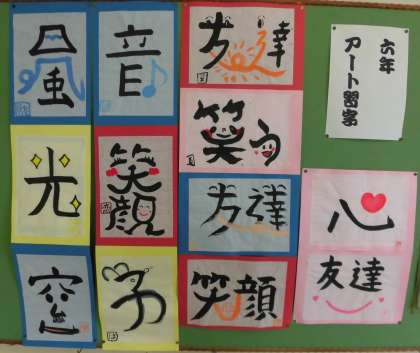 六年
アート習字
友達
笑う
友達
笑顔
心
友達
音
笑顔
子
風
光
窓